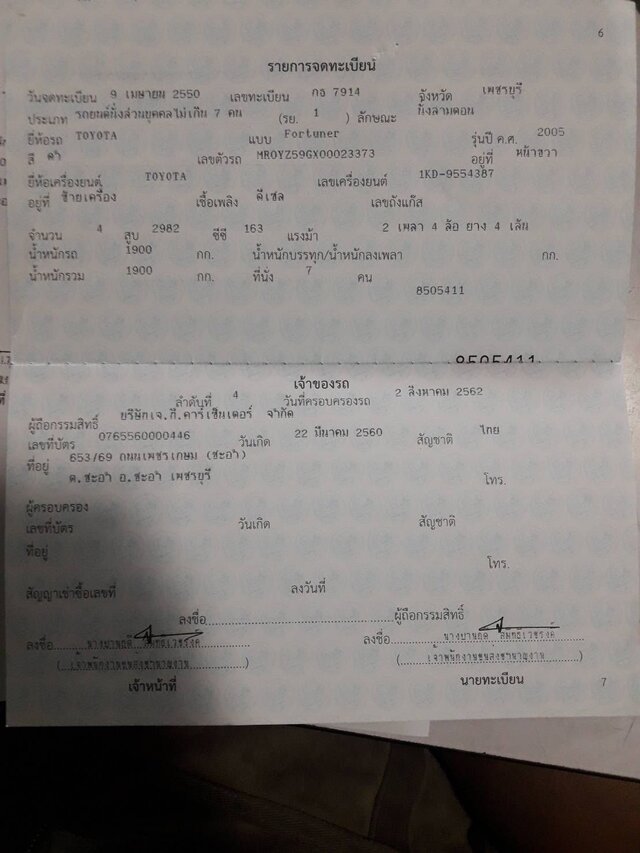 6
รายการจดทะเบียน
วันจดทะเบียน 9 เมษายน 2550 เลขทะเบียน กธ 7914 จังหวัด เพชรบุรี
ประเภท รถยนต์นั่งส่วนบุคคลไม่เกิน 7 คน (รย. 1 ) ลักษณะ นั่งสามตอน
ยี่ห้อรถ TOYOTA แบบ Fortuner รุ่นปี ค.ศ. 2005
สี ดำ เลขตัวรถ MROYZ59GX00023373 อยู่ที่ หน้าขวา
ยี่ห้อเครื่องยนต์ TOYOTA เลขเครื่องยนต์ 1KD-9554387
อยู่ที่ ซ้ายเครื่อง เชื้อเพลิง ดีเซล เลขถังแก๊ส
จำนวน 4 สูบ 2982 ซีซี 163 แรงม้า 2 เพลา 4 ล้อ ยาง 4 เส้น
น้ำหนักรถ 1900 กก. น้ำหนักบรรทุก/น้ำหนักลงเพลา กก.
น้ำหนักรวม 1900 กก. ที่นั่ง 7 คน
8505411
8505411
เจ้าของรถ
ลำดับที่ 4 วันที่ครอบครองรถ 2 สิงหาคม 2562
ผู้ถือกรรมสิทธิ์ บริษัทเจ.ที.คาร์เซ็นเตอร์ จำกัด
เลขที่บัตร 0765560000446 วันเกิด 22 มีนาคม 2560 สัญชาติ ไทย
ที่อยู่ 653/69 ถนนเพชรเกษม (ชะอำ)
ต.ชะอำ อ.ชะอำ เพชรบุรี โทร.
ผู้ครอบครอง
เลขที่บัตร วันเกิด สัญชาติ
ที่อยู่
โทร.
สัญญาเช่าซื้อเลขที่ ลงวันที่
ลงชื่อ ผู้ถือกรรมสิทธิ์
ลงชื่อ ลงชื่อ
(เจ้าพนักงานขนส่งชำนาญงาน) (เจ้าพนักงานขนส่งชำนาญงาน)
เจ้าหน้าที่ นายทะเบียน
7